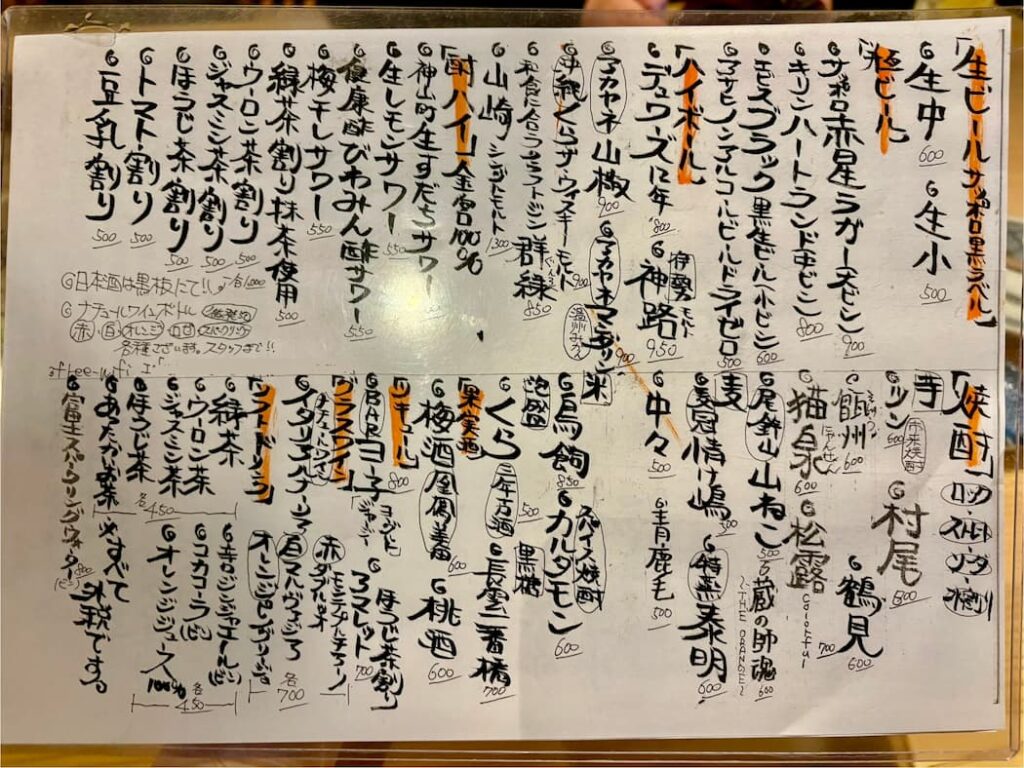 「生ビール サッポロ黒ラベル」
生中 600 生小 500
瓶ビール
サッポロ赤星ラガー大ビン 900
キリンハートランド中ビン 800
エビスブラック黒生ビール(小ビン) 600
アサヒノンアルコールビールドライゼロ 500
「ハイボール」
デュワーズ12年 800 神路 950
アカヤネ山椒 900 アカヤネマンダリン 900
900
和食に合うクラフトジン 群緑 850
山崎 シングルモルト 1300
「酎ハイ」金宮100%
神山町生すだちサワー
生レモンサワー 550
健康酢びわみん酢サワー 550
梅干しサワー 550
緑茶割り 抹茶使用 500
ウーロン茶割り 500
ジャスミン茶割り 500
ほうじ茶割り 500
トマト割り 500
豆乳割り 500
日本酒は黒板にて!! 各1,000
ナチュールワインボトル
赤 白 オレンジ スパークリング
各種ございます。スタッフまで!!
free-wifi
「焼酎」 ロック・ストレート・ソーダ・水割り
芋
村尾 800
鶴見 600
甑州 600
猫泉 にゃんせん 600 松露 colorful 700
尾鈴山 山ねこ 500 蔵の師魂 〜THE ORANGE〜 600
麦
情け嶋 500 特蒸泰明 600
中々 500 青鹿毛 500
米
鳥飼 850 カルダモン 600 スパイス焼酎
泡盛 黒糖
くら 三年古酒 500 長雲一番橋 700
「果実酒」
梅酒 鳳凰美田 600 桃酒 600
「リキュール」
800 ほうじ茶割り
アマレット 700
「グラスワイン」
ナチュールワイン
赤 モンテプルチアーノ ダブルッツォ
白 マルヴァジア 各700
オレンジ
「ソフトドリンク」
緑茶
ウーロン茶
ジャスミン茶
ほうじ茶
あったかいお茶 各450
辛口ジンジャエール(ビン)
コカコーラ(ビン)
オレンジジュース 100% 各450
富士スパークリングウォーター(ビン) 800
※すべて外税です。